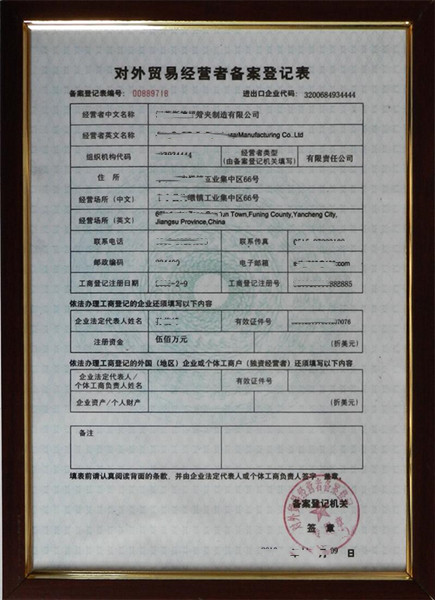 对外贸易经营者备案登记表
备案登记表编号: 00889718 进出口企业代码: 3200684934444
经营者中文名称 夹制造有限公司
经营者英文名称 Manufacturing Co. Ltd
组织机构代码 经营者类型 (由备案登记机关填写) 有限责任公司
住 所 工业集中区66号
经营场所（中文） 墩镇工业集中区66号
经营场所（英文） Town,Funing County,Yancheng City, Jiangsu Province,China
联系电话 联系传真
邮政编码 电子邮箱 .com
工商登记注册日期 -2-9 工商登记注册号 882885
依法办理工商登记的企业还须填写以下内容
企业法定代表人姓名 有效证件号
注册资金 伍佰万元 (折美元)
依法办理工商登记的外国（地区）企业或个体工商户（独资经营者）还须填写以下内容
企业法定代表人/ 个体工商负责人姓名 有效证件号
企业资产/个人财产 (折美元)
备注
填表前请认真阅读背面的条款，并由企业法定代表人或个体工商负责人签字、盖章。
备案登记机关
签 章
年 月 09 日